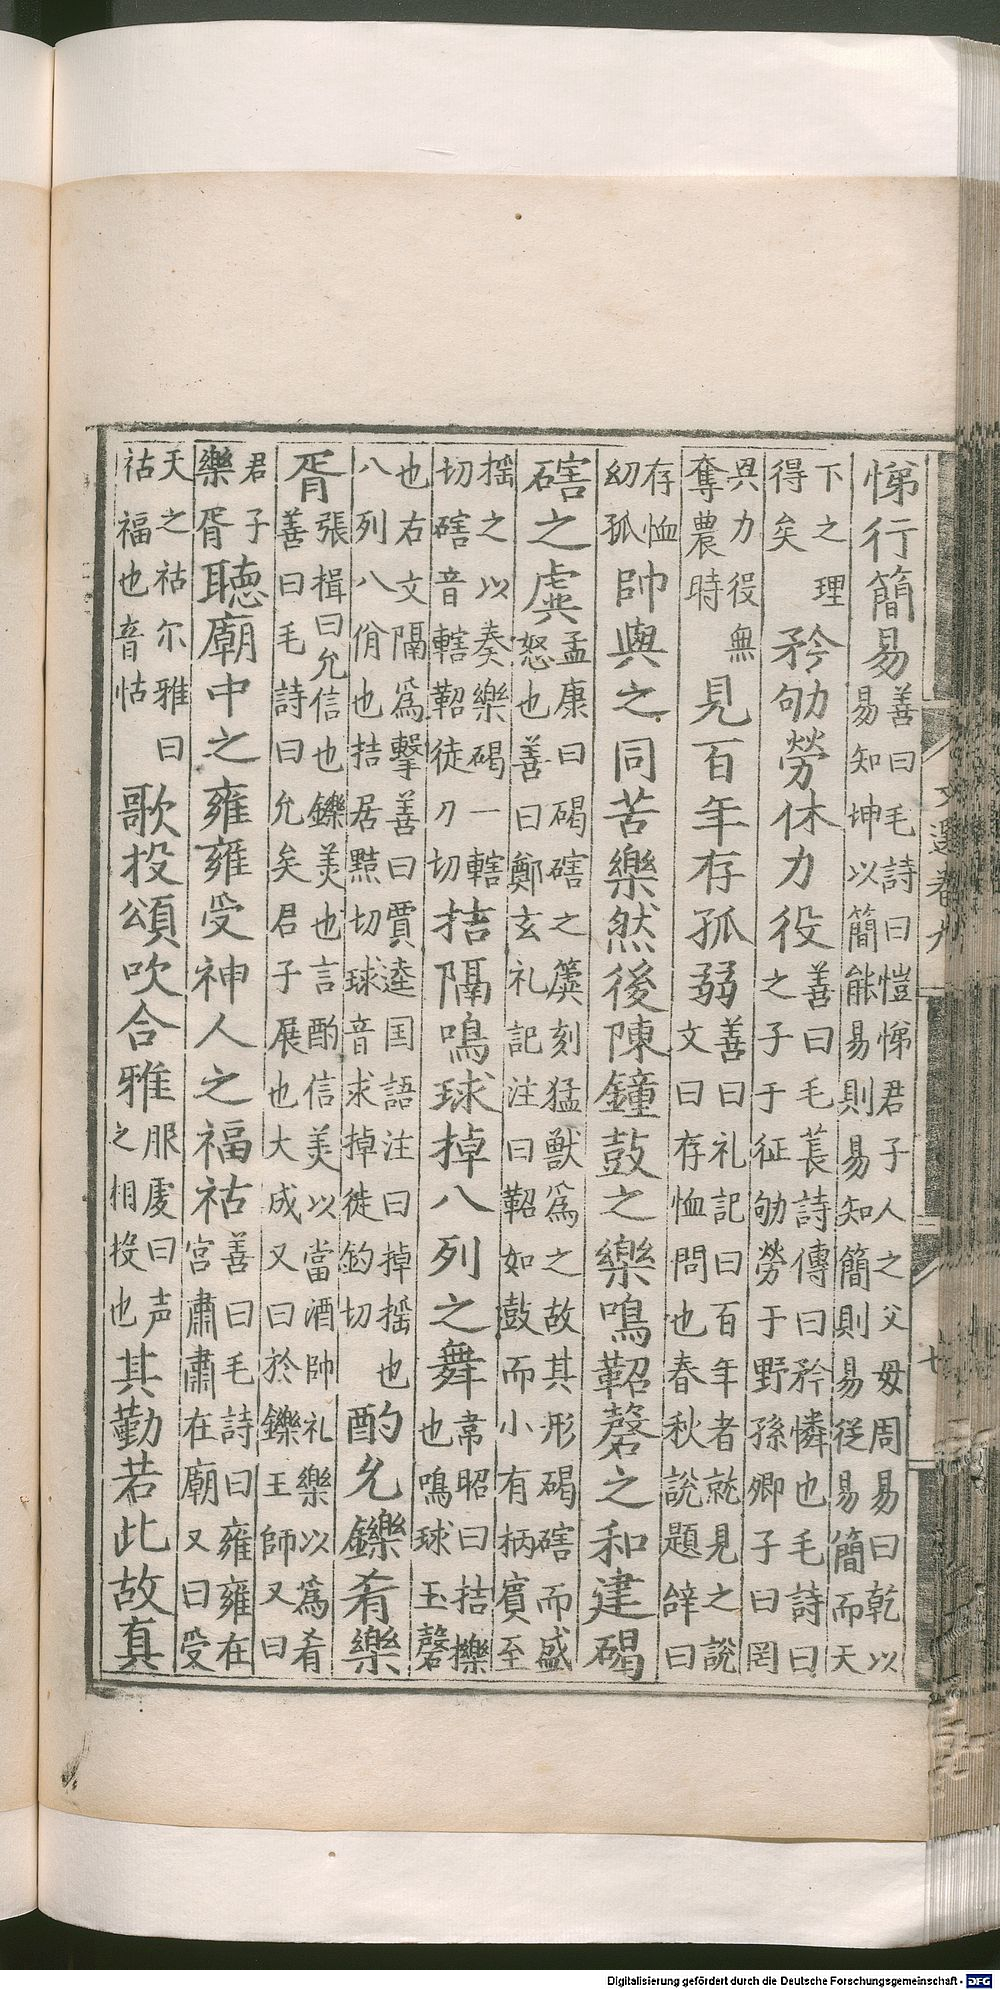 文選卷九 七
悌行簡易善曰毛詩曰愷悌君子人之父母周易曰乾以易知坤以簡能易則易知簡則易從易簡而天
下之理得矣矜劬勞休力役善曰毛萇詩傳曰矜憐也毛詩曰之子于征劬勞于野孫卿子曰罔
㒷力役無奪農時見百年存孤弱善曰礼記曰百年者就見之說文曰存恤問也春秋說題辝曰
存恤幼孤帥與之同苦樂然後陳鐘鼓之樂鳴鞀磬之和建碣
磍之虡孟康曰碣磍之簴刻猛獸為之故其形碣磍而盛怒也善曰鄭玄礼記注曰鞀如鼓而小有柄賓至
揺之以奏樂碣一轄切磍音轄鞀徒刀切拮隔鳴球掉八列之舞韋昭曰拮擽也鳴球玉磬
也右文隔為擊善曰賈逵国語注曰掉揺也八列八佾也拮居黠切球音求掉徒釣切酌允鑠肴樂
胥張揖曰允信也鑠美也言酌信美以當酒帥礼樂以為肴善曰毛詩曰允矣君子展也大成又曰於鑠王師又曰
君子樂胥聽廟中之雍雍受神人之福祜善曰毛詩曰雍雍在宮肅肅在廟又曰受
天之祜尔雅曰祜福也音怙歌投頌吹合雅服虔曰声之相投也其勤若此故真
Digitalisierung gefördert durch die Deutsche Forschungsgemeinschaft - DFG